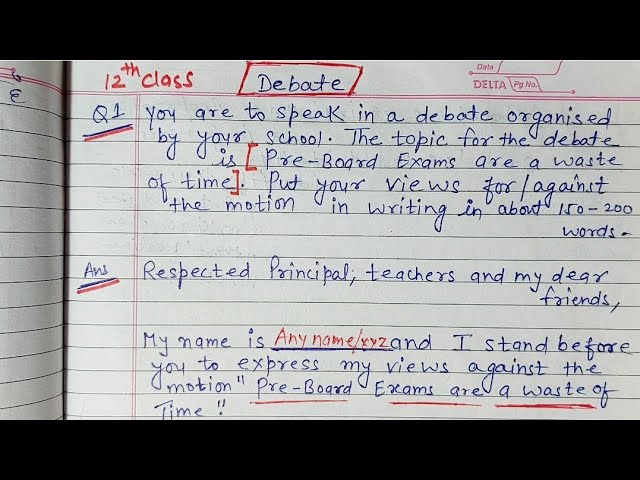 Date
DELTA Pg No.
12th class Debate
Q1 You are to speak in a debate organised
by your school. The topic for the debate
is [Pre-Board Exams are a waste
of time]. Put your views for/against
the motion in writing in about 150-200
words.
Ans Respected Principal, teachers and my dear
friends,
My name is Any name/xyz and I stand before
you to express my views against the
motion" Pre-Board Exams are a waste of
Time".